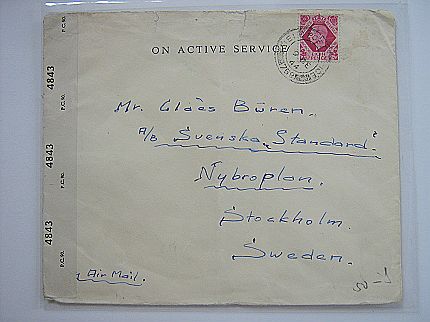 ON ACTIVE SERVICE
4843
P.C. 90.
4843
P.C. 90.
4843
P.C. 90.
Mr. Claës Büren.
A/B "Svenska Standard".
Nybroplan.
Stockholm.
Sweden.
Air Mail.